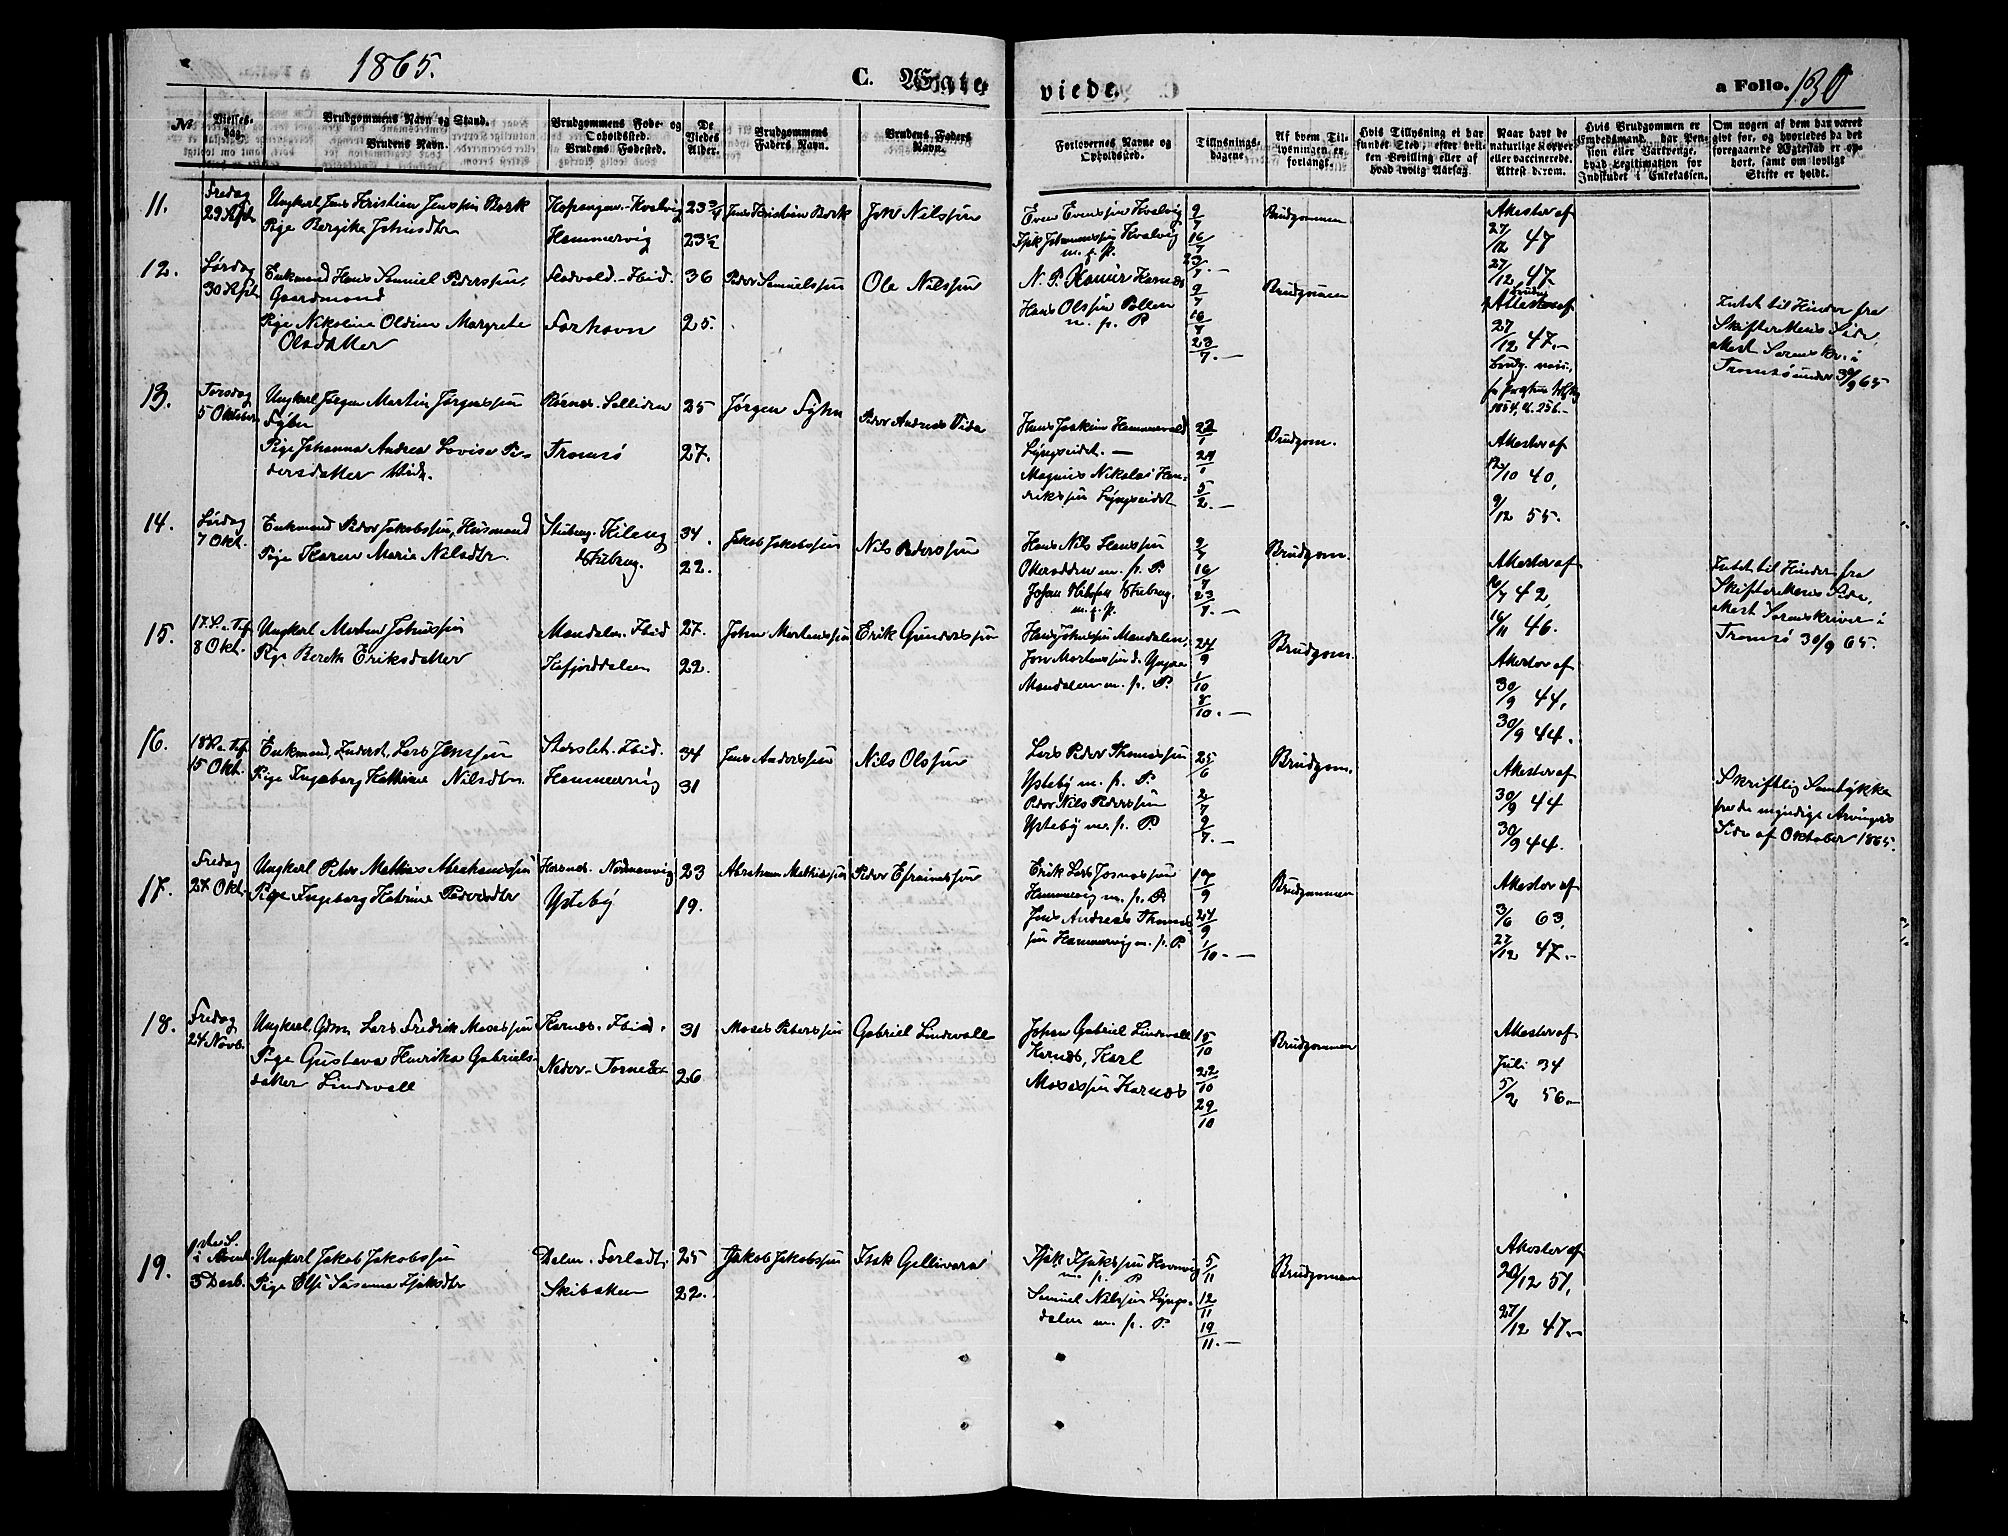 1865.
C. Ægte
viede.
a Folio. 130
No
Vielses-
dag.
Brudgommens Navn og Stand.
Brudens Navn.
Brudgommens Føde- og
Opholdssted.
Brudens Fødested.
De
Viedes
Alder.
Brudgommens
Faders Navn.
Brudens Faders
Navn.
Forlovernes Navne og
Opholdssted.
Tillysnings-
dagene.
Af hvem Til-
lysningen er
forlangt.
Hvis Tillysning ei har
fundet Sted, efter hvil-
ken Bevilling eller af
hvad lovlig Aarsag.
Naar havt de
naturlige Kopper
eller vaccinerede.
Attest derom.
Hvis Brudgommen er
Embedsmand, har Pen-
sion eller Vartpenge,
hvad Legitimation for
Indskudet i Enkekassen.
Om nogen af dem har været
givt før, og hvorledes da det
foregaaende Ægteskab er op-
hørt, samt om lovligt
Skifte er holdt.
11.
Fredag
29 Sept.
Ungkarl Jens Kristian Jenssøn Bork
Pige Bergitha Johnsdtr
Kopangen - Kvalvig
Hammervig
23 3/4
23 1/2
Jens Kristian Bork
Joh Nilssøn
Even Evenssøn Kvalvig
Isak Johannessøn Kvalvig
m. f. P.
9/7
16/7
23/7. —
Brudgommen
Attester af
27/12 47
27/12 47.
12.
Lørdag
30 Sept.
Enkmand Hans Samuel Pederssøn,
Gaardmand
Pige Nikoline Oldine Margrete
Olsdatter
Flodvold - Ibid.
Forhavn
36
25.
Peder Samuelssøn
Ole Nilssøn
N. P. Karnes
Hans Olssøn Pollen
m. p. P
9/7
16/7
23/7. —
Brudgommen
Bruden
Attester af
27/12 47. —
1854, N. 256. —
Intet til Hinder fra
Skifterettens Side,
Attest Sorenskr. i
Tromsø under 30/9 65
13.
Torsdag
5 Oktober
Ungkarl Jørgen Martin Jørgenssøn
Figher
Pige Johanna Andrea Lovise Pe-
dersdatter Vide.
Tromsø
25
27.
Jørgen
Peder Andreas Vide
Hans Joakim Hammervold
Lyngseidet. —
Magnus Nikolai Hen-
rikssøn Lyngseidet
22/1
29/1
5/2. —
Brudgom.
Attester af
12/10 40,
9/12 55.
14.
Lørdag
7 Okt.
Enkmand Peder Jakobssøn, Husmand
Pige Karen Maria Nilsdtr
34.
22.
Jakob Jakobssøn
Nils Pederssøn
Hans Nils Hanssøn
m. p. P.
m. f. P.
9/7
16/7
23/7. —
Brudgom.
Attester af
42,
16/11 46.
Intet til Hinder fra
Skifterettens Side,
Attest Sorenskriver i
Tromsø 30/9 65.
15.
17. S. e. Tref.
8 Okt.
Ungkarl Morten Johnssøn
Pige Bereth Eriksdatter
Mandalen - Ibid
Kafjorddalen
27.
22.
John Mortenssøn
Erik Gunderssøn
Hans Johnssøn Mandalen,
John Mortenssøn d. Yngre
Mandalen m. p. P.
24/9
1/10
8/10. —
Brudgom.
Attester af
30/9 44,
30/9 44.
16.
18 S. e. Tref.
15 Okt.
Enkmand, Inderst, Lars Jenssøn
Pige Ingeborg Kathrine Nilsdtr.
Storslet - Ibid.
Hammervig
34
31
Jens Anderssøn
Nils Olssøn
Lars Peder Thomassøn
Ysteby m. p. P.
Peder Nils Pederssøn
Ysteby m. p. P.
25/6
2/7
9/7. —
Brudgom.
Attester af
30/9 44
30/9 44.
Skriftlig Samtykke
fra de myndige Arvingers
Side af Oktober 1865.
17.
Fredag
27 Okt.
Ungkarl Peter Mathias Abrahamssøn
Pige Ingeborg Katrine Pedersdtr
Karnes - Nordmannvig
Ysteby
23
19.
Abraham Mathiassøn
Peder Efraimssøn
Erik Lars Josnassøn
Hammervig m. p. P.
Jens Andreas Thomas-
søn Hammervig m. p. P.
17/9
24/9
1/10. —
Brudgommen
Attester af
3/6 63,
27/12 47. —
18.
Fredag
24 Novb.
Ungkarl, Gdm. Lars Fredrik Mosessøn
Pige Gustava Henrika Gabriels-
datter Lindevall
Karnes - Ibid.
Neder - Torneå
31
26
Moses Peterssøn
Gabriel Lindevall
Johan Gabriel Lindevall
Karnes, Karl
Mosessøn Karnes
15/10
22/10
29/10
Brudgommen
Attester af
Juli 34
5/2 56. —
19.
1ste S.
i Advent
3 Decb.
Ungkarl Jakob Jakobssøn
Pige Elsi Susanna Isaksdtr
Dalen - Forladt.
Skibotten
25
22.
Jakob Jakobssøn
Isak Gellivara
Isak Isakssøn Havnvig
m. p. P
Samuel Nilssøn Lyngs-
dalen m. p. P.
5/11
12/11
19/11. —
Brudgommen
Attester af
20/12 51,
27/12 47. —